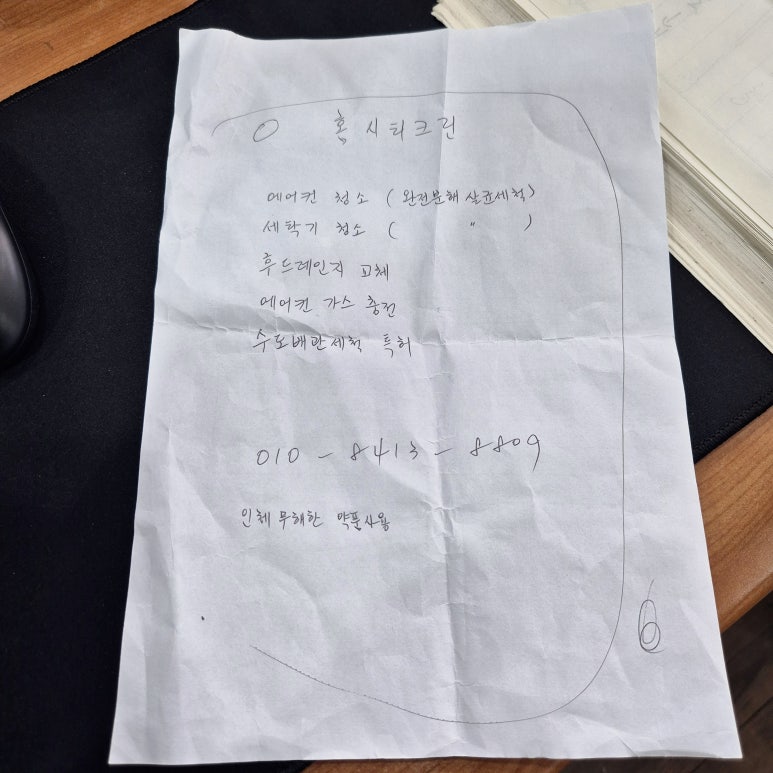 O 훅 시티크린
에어컨 청소 ( 완전분해 살균세척)
세탁기 청소 ( " )
후드레인지 교체
에어컨 가스 충전
수도배관세척 특허
010 - 8413 - 8809
인체 무해한 약품사용